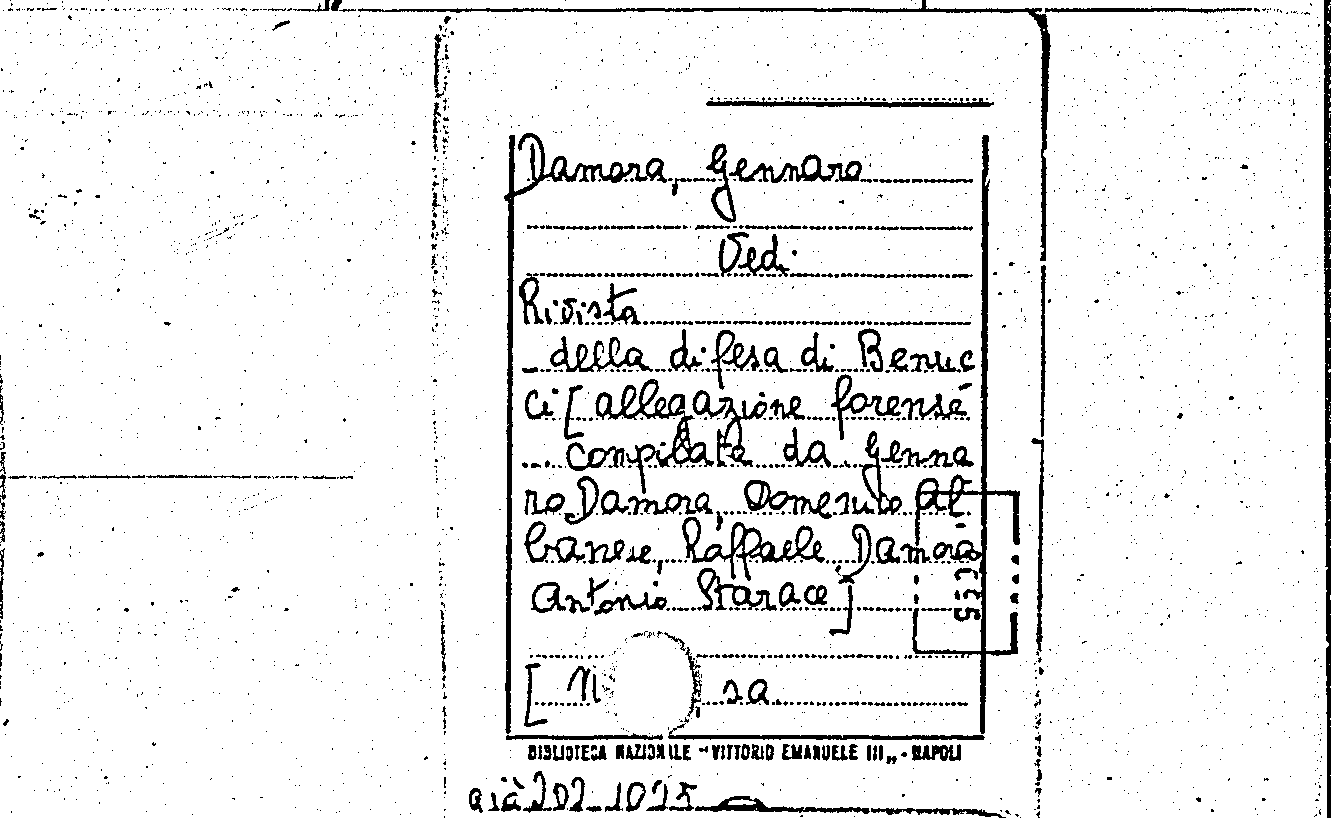 Damora, Gennaro
Vedi
Rivista
della difesa di Benuc
ci [allegazione forense
... compilata da Genna
ro Damora, Domenico Al
banese, Raffaele Damora
Antonio Starace]
[
BIBLIOTECA NAZIONALE "VITTORIO EMANUELE III„ - NAPOLI
già 202 1025